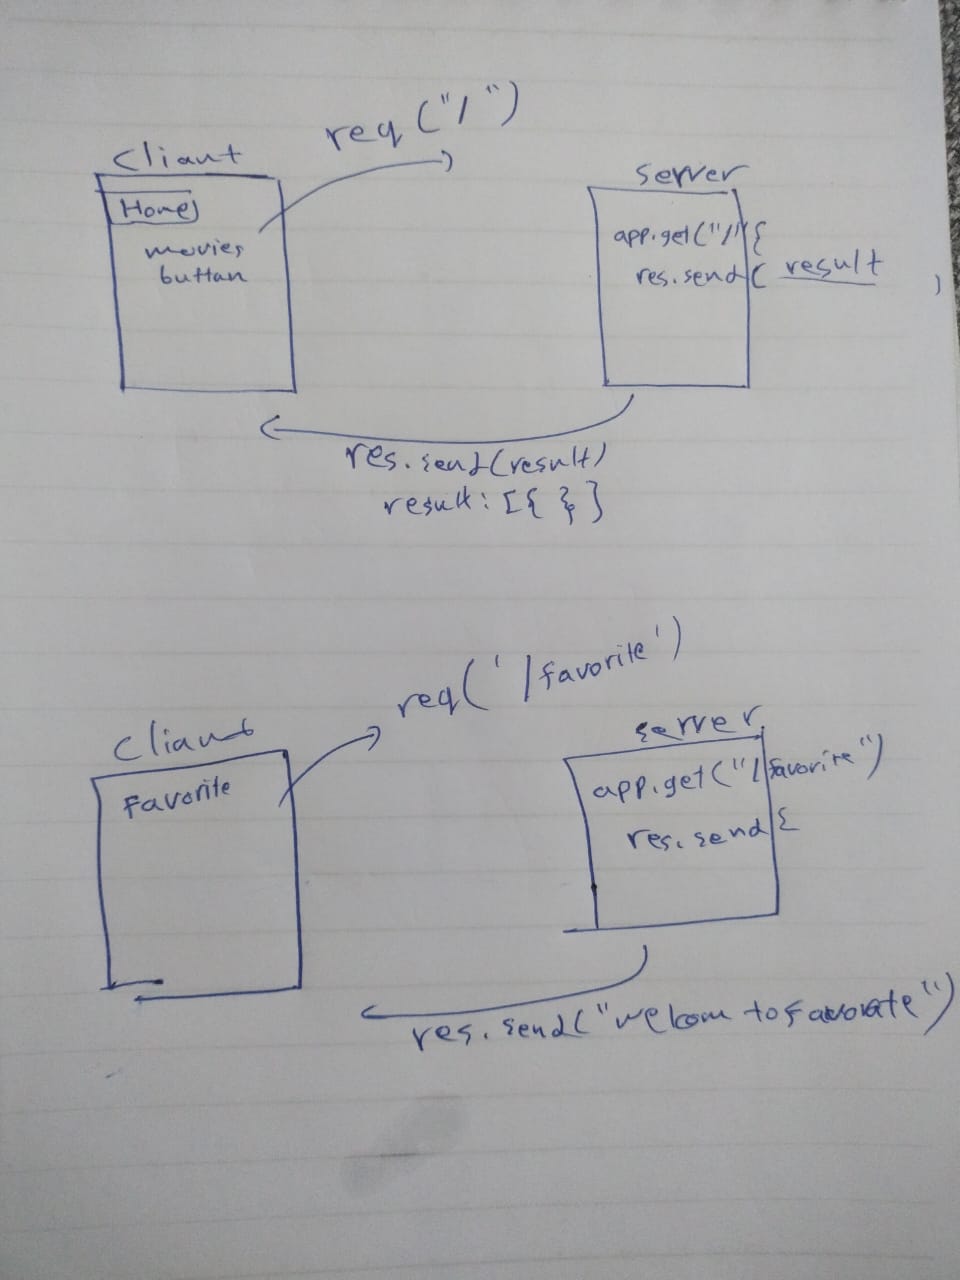 req ("/")
Cliant
Home
movies
buttan
server
app.get("/"{
res.send( result )
res.send(result)
result: [{ }]
req('/favorite')
Cliant
Favorite
server
app.get("/favorite")
res.send{
res.send("welcom to favorate")